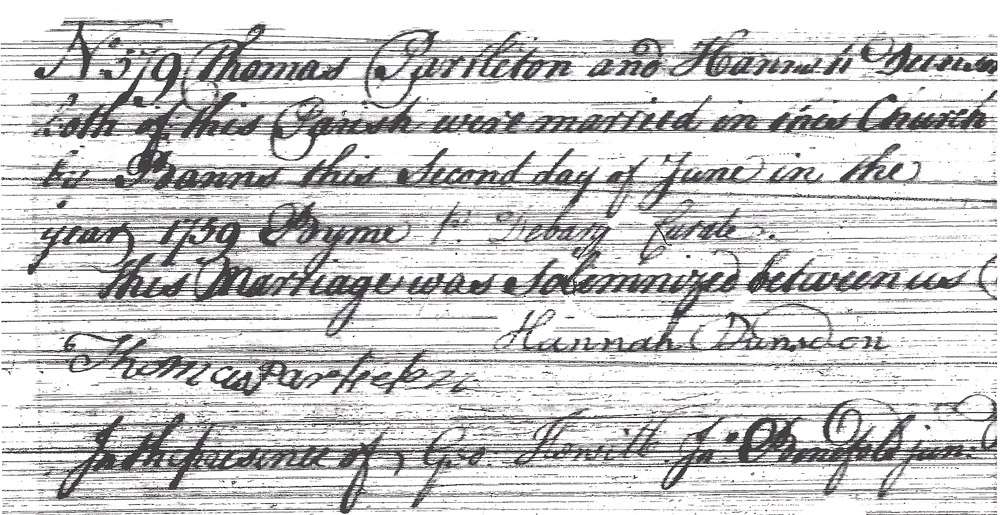 N. 579 Thomas Partleton and Hannah
both of this Parish were married in this Church
by Banns this Second day of June in the
year 1759 By me Pr. Debary Curate.
This Marriage was Solemnized between us
Hannah Dunsdon
Thomas Partleton
In the presence of Geo. Howitt Jn.o jun.